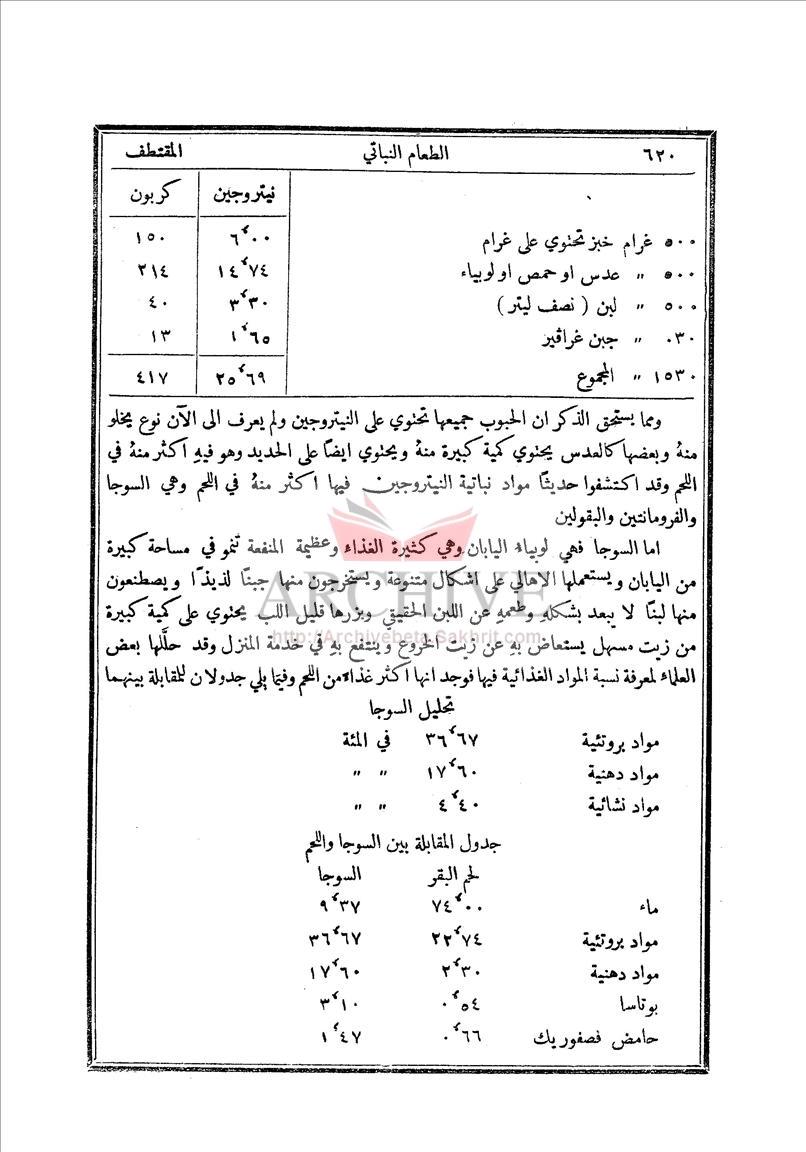 ٦٢٠ الطعام النباتي المقتطف
نيتروجين كربون
٥٠٠ غرام خبز تحتوي على غرام ٦٬٠٠ ١٥٠
٥٠٠ „ عدس او حمص او لوبياء ١٤٬٧٤ ٢١٤
٥٠٠ „ لبن ( نصف ليتر ) ٣٬٣٠ ٤٠
٠٣٠ „ جبن غراڤير ١٬٦٥ ١٣
١٥٣٠ „ المجموع ٢٥٬٦٩ ٤١٧
ومما يستحق الذكر ان الحبوب جميعها تحتوي على النيتروجين ولم يعرف الى الآن نوع يخلو
منهُ وبعضها كالعدس يحتوي كمية كبيرة منهُ ويحتوي ايضاً على الحديد وهو فيهِ اكثر منهُ في
اللحم وقد اكتشفوا حديثاً مواد نباتية النيتروجين فيها اكثر منهُ في اللحم وهي السوجا
والفرومانتين والبقولين
اما السوجا فهي لوبياء اليابان وهي كثيرة الغذاء وعظيمة المنفعة تنمو في مساحة كبيرة
من اليابان ويستعملها الاهالي على اشكال متنوعة ويستخرجون منها جبناً لذيذاً ويصطنعون
منها لبناً لا يبعد بشكلهِ وطعمهِ عن اللبن الحقيقي وبزرها قليل اللب يحتوي على كمية كبيرة
من زيت مسهل يستعاض بهِ عن زيت الخروع وينتفع بهِ في خدمة المنزل وقد حلَّلها بعض
العلماء لمعرفة نسبة المواد الغذائية فيها فوجد انها اكثر غذاءً من اللحم وفيما يلي جدولان للمقابلة بينهما
تحليل السوجا
مواد بروتئية ٣٦٬٦٧ في المئة
مواد دهنية ١٧٬٦٠ „ „
مواد نشائية ٤٬٤٠ „ „
جدول المقابلة بين السوجا واللحم
لحم البقر السوجا
ماء ٧٤٬٠٠ ٩٬٣٧
مواد بروتئية ٢٢٬٧٤ ٣٦٬٦٧
مواد دهنية ٢٬٣٠ ١٧٬٦٠
بوتاسا ٠٬٥٤ ٣٬١٠
حامض فصفوريك ٠٬٦٦ ١٬٤٧
ARCHIVE
http://Archivebeta.Sakhrit.com